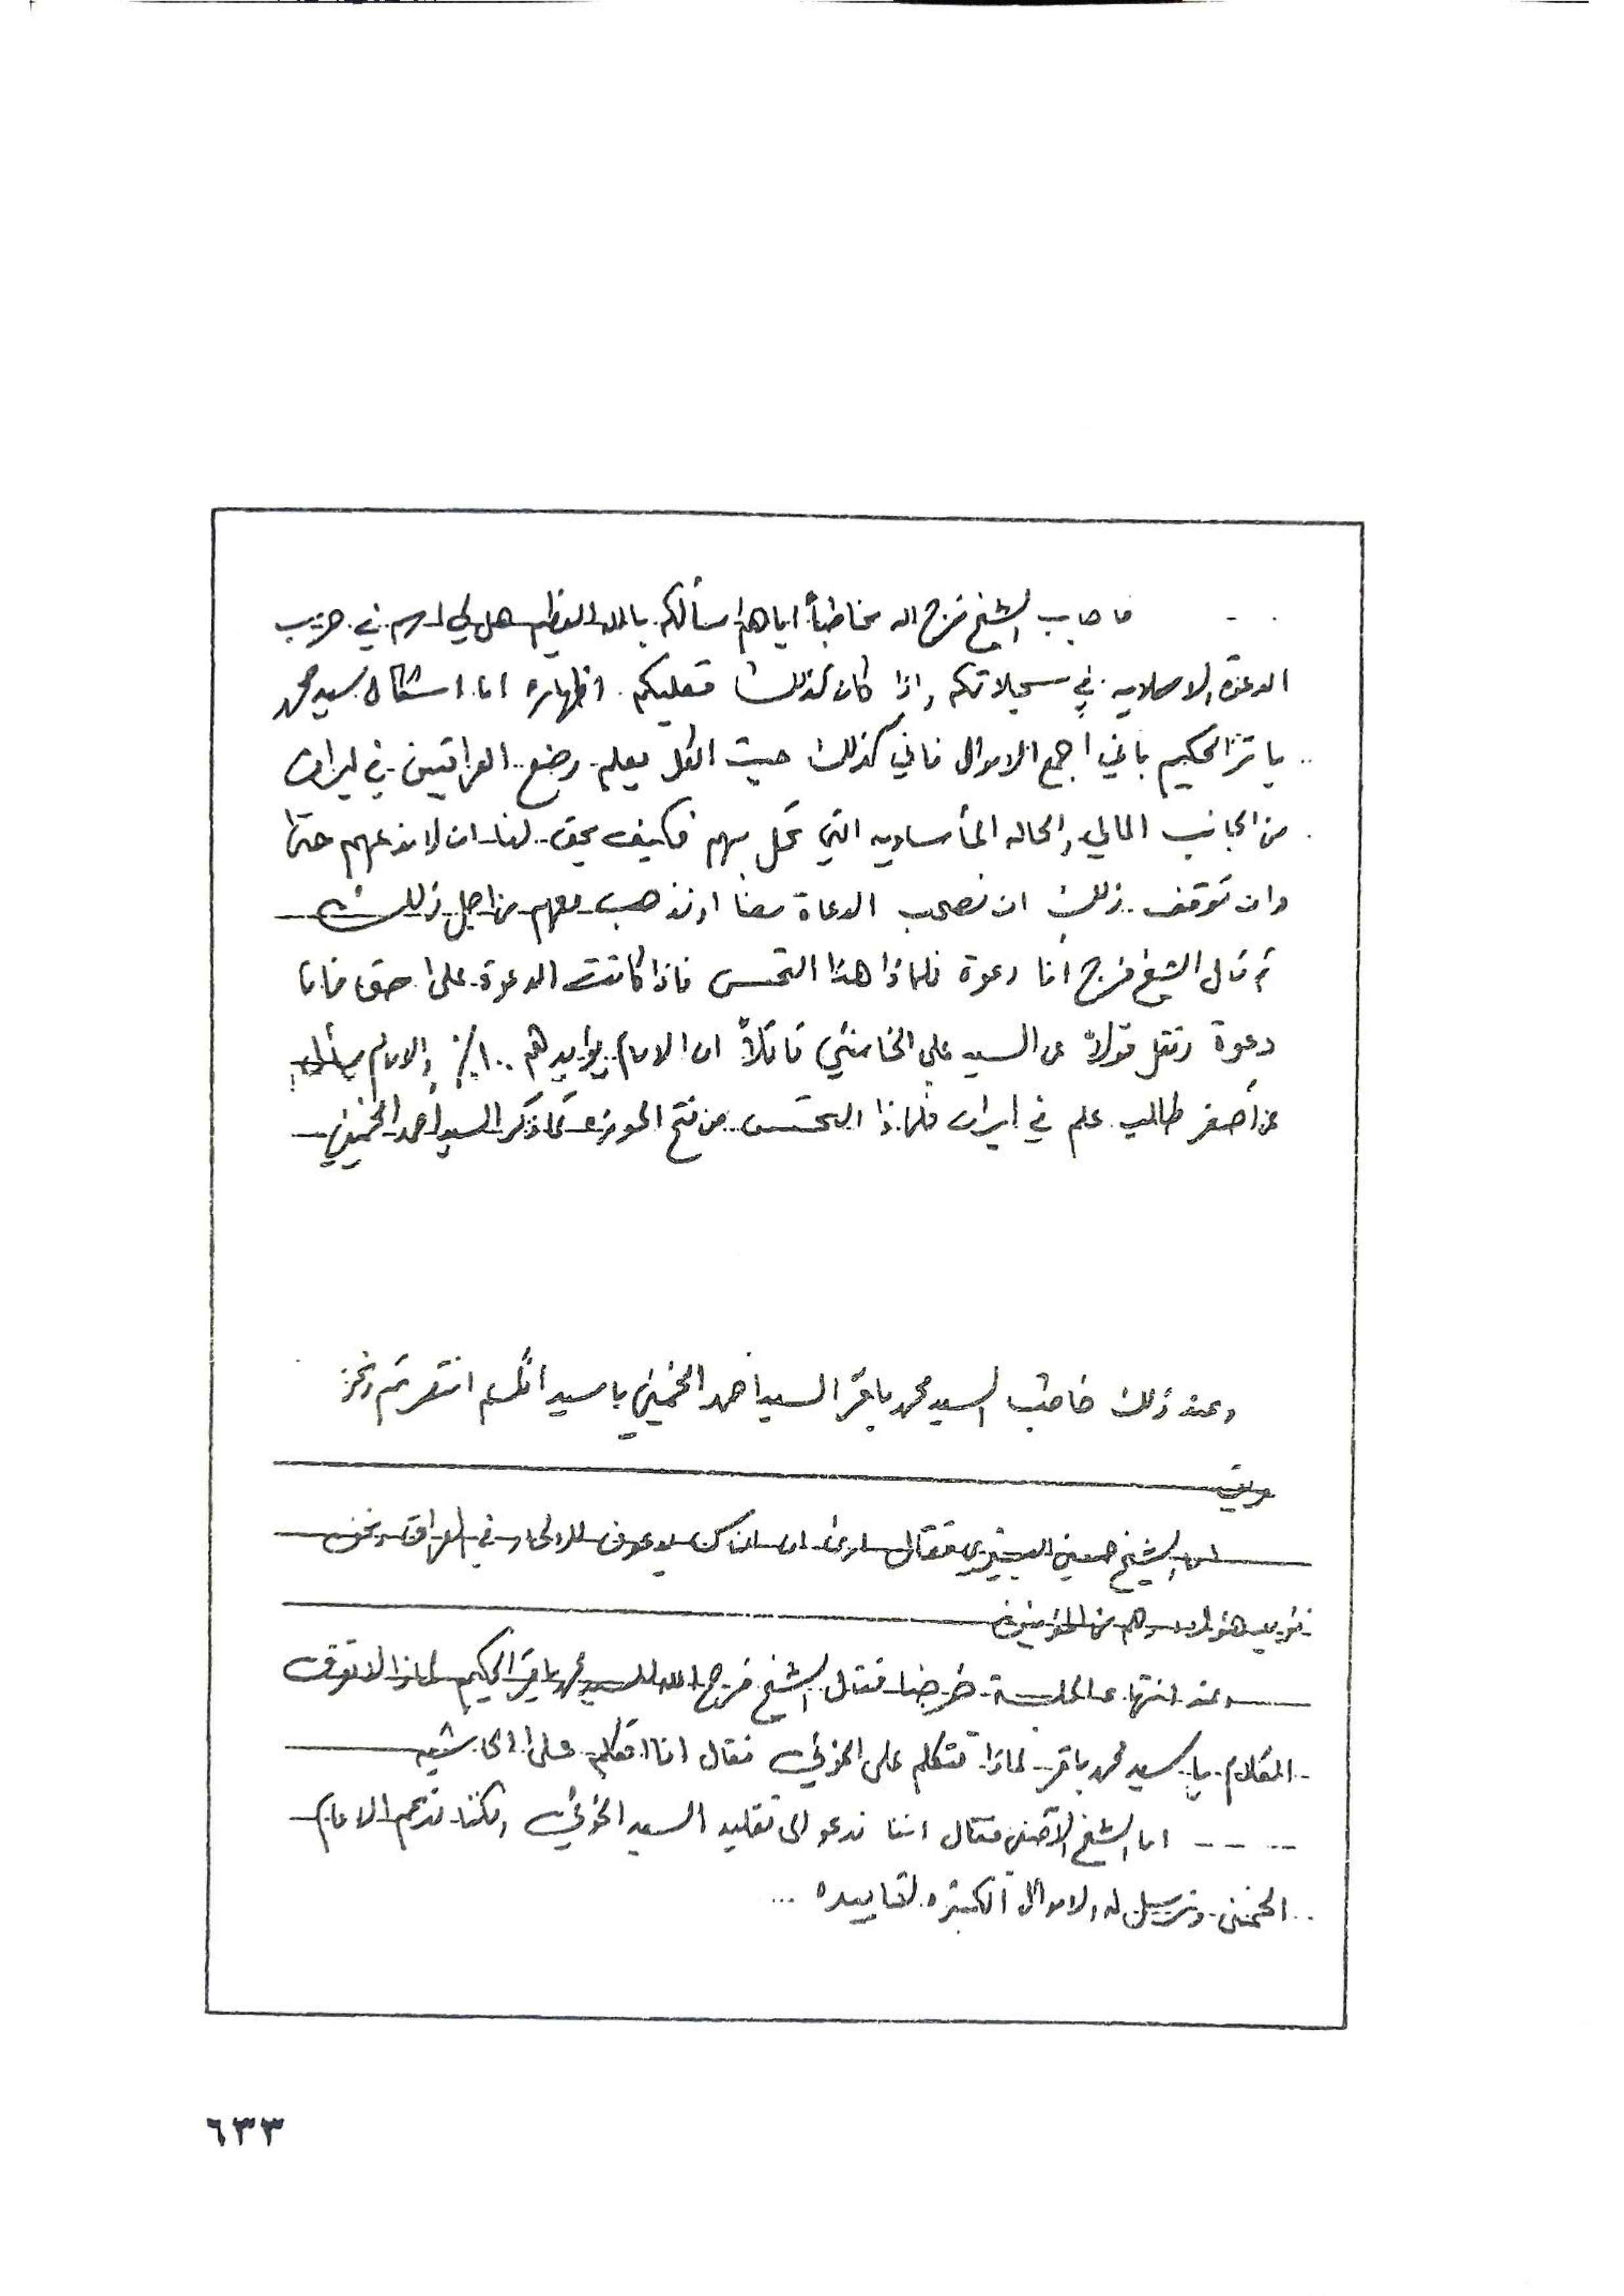 فاجاب الشيخ فرج الله مخاطباً اياهم اسألكم بالله العظيم هل لي اسم في حزب
الدعوة الاسلاميه في سجلاتكم واذا كان كذلك فعليكم اظهاره اما اشكال سيد محمد
باقر الحكيم باني اجمع الاموال فاني كذلك حيث الكل يعلم وضع العراقيين في ايران
من الجانب المالي والحاله المأساويه التي تحل بهم فكيف يحق لنا ان لا ندعمهم حتى
وان توقف ذلك ان نصحب الدعاة معنا او نذهب معهم من اجل ذلك
ثم قال الشيخ فرج انا دعوة فلماذا هذا التحسس فاذا كانت الدعوة على حق فانا
دعوة ونقل قولاً عن السيد علي الخامنئي قائلاً ان الامام يؤيدهم ١٠٠٪ والامام يسأل
عن أصغر طالب علم في ايران فلماذا التحسس من فتح الحوزه كما ذكر السيد احمد الخميني
وعند ذلك خاطب السيد محمد باقر السيد احمد الخميني يا سيد انكم انتصرتم ونحن
الشيخ حسين البشيري فقال ارى ان اناس يدعون للإلحاد في العراق ونحن
نؤيد هؤلاء وهم من المؤمنين
وعند انتهاء الجلسة خرجنا فقال الشيخ فرج الله للسيد محمد باقر الحكيم لماذا لا توقف
الكلام يا سيد محمد باقر لماذا تتكلم على الخوئي فقال انا اتكلم على الحاشيه
---- اما الشيخ الآصفي فقال اننا ندعو الى تقليد السيد الخوئي ولكننا ندعم الامام
الخميني ونرسل له الاموال الكثيره لتاييده ...
٦٣٣